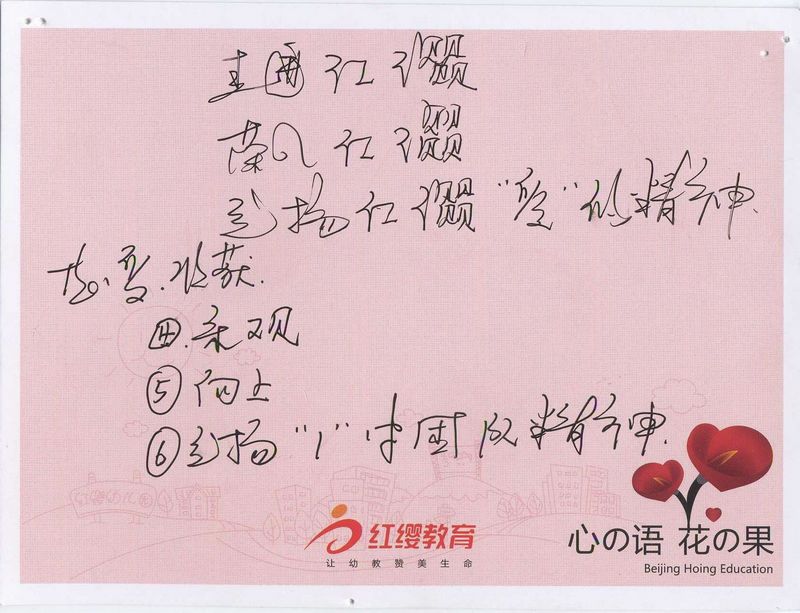 主园红缨
红缨
弘扬红缨"爱"的精神.
感受.收获.
④.乐观
⑤向上
⑥弘扬"1"中国的精神.
红缨教育
让幼教赞美生命
心の语 花の果
Beijing Hoing Education